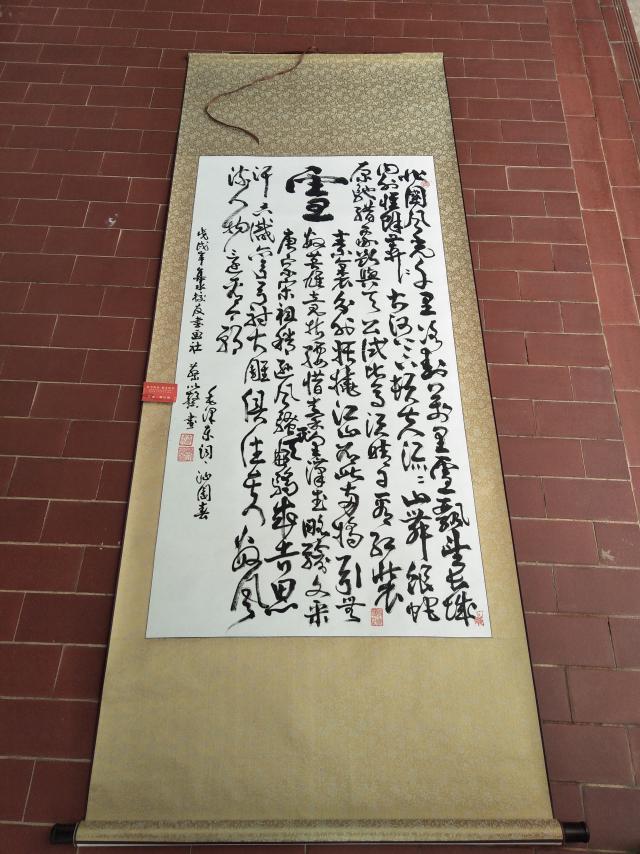 北國风光千里冰封萬里雪飘望長城
内外惟馀莽莽大河上下顿失滔滔山舞银蛇
原驰蜡象欲與天公试比高须晴日看红装
素裹分外妖娆江山如此多娇引無
雪
数英雄竞折腰惜秦皇漢武略输文采
唐宗宋祖稍逊风骚一代天骄成吉思
汗只識弯弓射大雕俱往矣数风
流人物还看今朝
毛泽东词、沁园春
戊戌年集水校友書画社
蔡 書